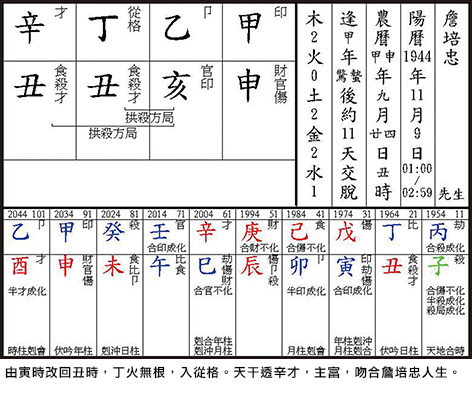 詹培忠 先生
陽曆1944年11月9日01:00/02:59
農曆甲申年九月廿四日丑時
逢甲年驚蟄後約11天交脫
木2火0土2金2水1
甲 印
乙 卩
丁 從格
辛 才
申 財官傷
亥 官印
丑 食殺才
丑 食殺才
拱殺方局
拱殺方局
2044 101 2034 91 2024 81 2014 71 2004 61 1994 51 1984 41 1974 31 1964 21 1954 11
乙 卩
甲 印
癸 殺
壬 官 合印成化
辛 才
庚 財 合財不化
己 食 合傷不化
戊 傷 合印成化
丁 比
丙 劫 合殺成化
酉 才 半才成化
申 財官傷
未 食比卩
午 比食
巳 劫傷財 合官不化
辰 傷卩殺
卯 卩 半印成化
寅 印劫傷 合印成化
丑 食殺才
子 殺 合傷不化 半殺成化 殺局成化
時柱剋會
伏吟年柱
剋沖日柱
剋合年柱 剋沖月柱
月柱剋會
年柱剋沖 月柱剋合
伏吟日柱
天地合時
由寅時改回丑時，丁火無根，入從格。天干透辛才，主富，吻合詹培忠人生。